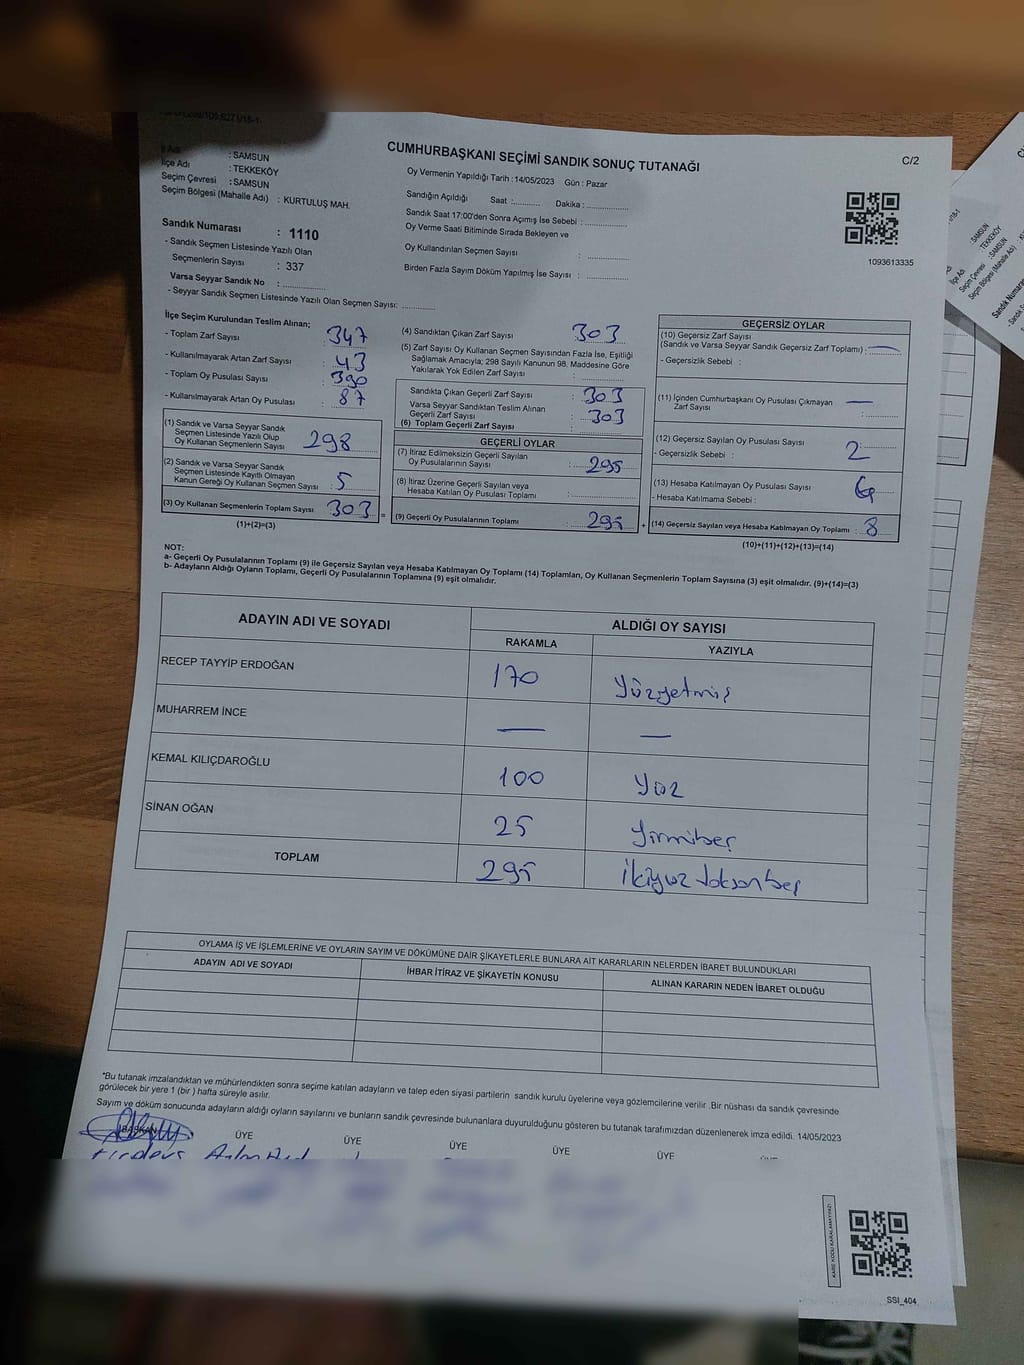 CUMHURBAŞKANI SEÇİMİ SANDIK SONUÇ TUTANAĞI
C/2
İl Adı : SAMSUN
İlçe Adı : TEKKEKÖY
Seçim Çevresi : SAMSUN
Seçim Bölgesi (Mahalle Adı) : KURTULUŞ MAH.
Sandık Numarası : 1110
- Sandık Seçmen Listesinde Yazılı Olan
Seçmenlerin Sayısı : 337
Varsa Seyyar Sandık No : ..............
- Seyyar Sandık Seçmen Listesinde Yazılı Olan Seçmen Sayısı: ..............
Oy Vermenin Yapıldığı Tarih : 14/05/2023 Gün : Pazar
Sandığın Açıldığı Saat :.......... Dakika : ..............
Sandık Saat 17:00'den Sonra Açımış İse Sebebi : ..............
Oy Verme Saati Bitiminde Sırada Bekleyen ve
Oy Kullandırılan Seçmen Sayısı : ..............
Birden Fazla Sayım Döküm Yapılmış İse Sayısı : ..............
1093613335
İlçe Seçim Kurulundan Teslim Alınan;
- Toplam Zarf Sayısı : 347
- Kullanılmayarak Artan Zarf Sayısı : 43
- Toplam Oy Pusulası Sayısı : 390
- Kullanılmayarak Artan Oy Pusulası : 87
(1) Sandık ve Varsa Seyyar Sandık
Seçmen Listesinde Yazılı Olup
Oy Kullanan Seçmenlerin Sayısı : 298
(2) Sandık ve Varsa Seyyar Sandık
Seçmen Listesinde Kayıtlı Olmayan
Kanun Gereği Oy Kullanan Seçmen Sayısı : 5
(3) Oy Kullanan Seçmenlerin Toplam Sayısı : 303 =
(1)+(2)=(3)
(4) Sandıktan Çıkan Zarf Sayısı : 303
(5) Zarf Sayısı Oy Kullanan Seçmen Sayısından Fazla İse, Eşitliği
Sağlamak Amacıyla; 298 Sayılı Kanunun 98. Maddesine Göre
Yakılarak Yok Edilen Zarf Sayısı : ..............
Sandıkta Çıkan Geçerli Zarf Sayısı : 303
Varsa Seyyar Sandıktan Teslim Alınan
Geçerli Zarf Sayısı : 303
(6) Toplam Geçerli Zarf Sayısı : ..............
GEÇERLİ OYLAR
(7) İtiraz Edilmeksizin Geçerli Sayılan
Oy Pusulalarının Sayısı : 295
(8) İtiraz Üzerine Geçerli Sayılan veya
Hesaba Katılan Oy Pusulası Toplamı : ..............
(9) Geçerli Oy Pusulalarının Toplamı : 295 +
GEÇERSİZ OYLAR
(10) Geçersiz Zarf Sayısı
(Sandık ve Varsa Seyyar Sandık Geçersiz Zarf Toplamı) : —
- Geçersizlik Sebebi :
(11) İçinden Cumhurbaşkanı Oy Pusulası Çıkmayan —
Zarf Sayısı : ..............
(12) Geçersiz Sayılan Oy Pusulası Sayısı : 2
- Geçersizlik Sebebi :
(13) Hesaba Katılmayan Oy Pusulası Sayısı : 6
- Hesaba Katılmama Sebebi :
(14) Geçersiz Sayılan veya Hesaba Katılmayan Oy Toplamı : 8
(10)+(11)+(12)+(13)=(14)
NOT:
a- Geçerli Oy Pusulalarının Toplamı (9) ile Geçersiz Sayılan veya Hesaba Katılmayan Oy Toplamı (14) Toplamları, Oy Kullanan Seçmenlerin Toplam Sayısına (3) eşit olmalıdır. (9)+(14)=(3)
b- Adayların Aldığı Oyların Toplamı, Geçerli Oy Pusulalarının Toplamına (9) eşit olmalıdır.
ADAYIN ADI VE SOYADI ALDIĞI OY SAYISI
RAKAMLA YAZIYLA
RECEP TAYYİP ERDOĞAN 170 Yüzyetmiş
MUHARREM İNCE — —
KEMAL KILIÇDAROĞLU 100 Yüz
SİNAN OĞAN 25 Yirmibeş
TOPLAM 295 İkiyüz doksanbeş
OYLAMA İŞ VE İŞLEMLERİNE VE OYLARIN SAYIM VE DÖKÜMÜNE DAİR ŞİKAYETLERLE BUNLARA AİT KARARLARIN NELERDEN İBARET BULUNDUKLARI
ADAYIN ADI VE SOYADI İHBAR İTİRAZ VE ŞİKAYETİN KONUSU ALINAN KARARIN NEDEN İBARET OLDUĞU
*Bu tutanak imzalandıktan ve mühürlendikten sonra seçime katılan adayların ve talep eden siyasi partilerin sandık kurulu üyelerine veya gözlemcilerine verilir .Bir nüshası da sandık çevresinde
görülecek bir yere 1 (bir ) hafta süreyle asılır.
Sayım ve döküm sonucunda adayların aldığı oyların sayılarını ve bunların sandık çevresinde bulunanlara duyurulduğunu gösteren bu tutanak tarafımızdan düzenlenerek imza edildi. 14/05/2023
BAŞKAN ÜYE ÜYE ÜYE ÜYE ÜYE
KARE KODU KARALAMAYINIZ!
SSI_404
SAMSUN
TEKKEKÖY
SAMSUN